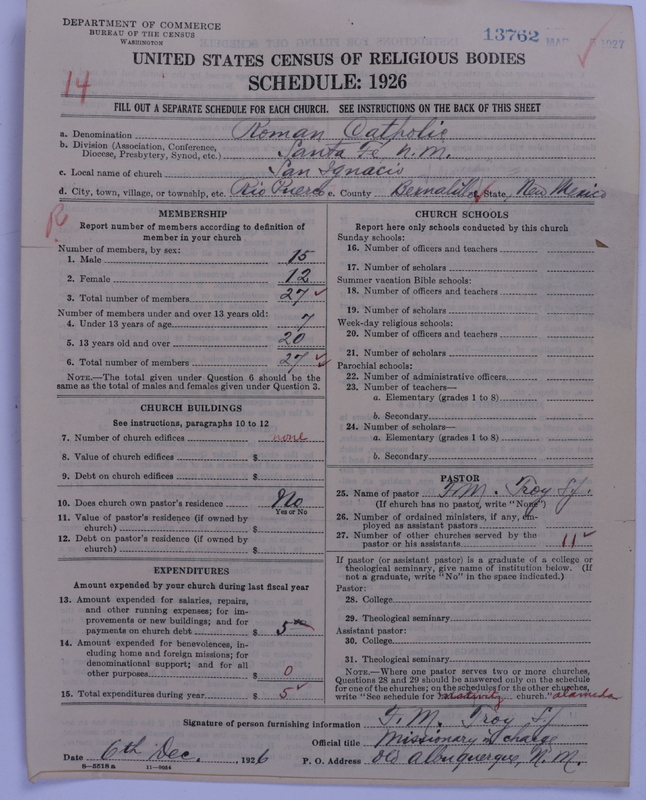 DEPARTMENT OF COMMERCE
BUREAU OF THE CENSUS
WASHINGTON
13762 MAR 1927
UNITED STATES CENSUS OF RELIGIOUS BODIES
14
SCHEDULE: 1926
FILL OUT A SEPARATE SCHEDULE FOR EACH CHURCH. SEE INSTRUCTIONS ON THE BACK OF THIS SHEET
a. Denomination Roman Catholic
b. Division (Association, Conference, Diocese, Presbytery, Synod, etc.) Santa Fe N.M.
c. Local name of church San Ignacio
d. City, town, village, or township, etc. Rio Puerco e. County Bernalillo State, New Mexico
R
MEMBERSHIP
Report number of members according to definition of
member in your church
Number of members, by sex:
1. Male 15
2. Female 12
3. Total number of members 27
Number of members under and over 13 years old:
4. Under 13 years of age 7
5. 13 years old and over 20
6. Total number of members 27
NOTE.—The total given under Question 6 should be the
same as the total of males and females given under Question 3.
CHURCH BUILDINGS
See instructions, paragraphs 10 to 12
7. Number of church edifices none
8. Value of church edifices $
9. Debt on church edifices $
10. Does church own pastor's residence No
Yes or No
11. Value of pastor's residence (if owned by
church) $
12. Debt on pastor's residence (if owned by
church) $
EXPENDITURES
Amount expended by your church during last fiscal year
13. Amount expended for salaries, repairs,
and other running expenses; for im-
provements or new buildings; and for
payments on church debt $ 5
14. Amount expended for benevolences, in-
cluding home and foreign missions; for
denominational support; and for all
other purposes $ 0
15. Total expenditures during year $ 5
CHURCH SCHOOLS
Report here only schools conducted by this church
Sunday schools:
16. Number of officers and teachers
17. Number of scholars
Summer vacation Bible schools:
18. Number of officers and teachers
19. Number of scholars
Week-day religious schools:
20. Number of officers and teachers
21. Number of scholars
Parochial schools:
22. Number of administrative officers
23. Number of teachers—
a. Elementary (grades 1 to 8)
b. Secondary
24. Number of scholars—
a. Elementary (grades 1 to 8)
b. Secondary
PASTOR
25. Name of pastor F.M. Troy SJ.
(If church has no pastor, write "None")
26. Number of ordained ministers, if any, em-
ployed as assistant pastors
27. Number of other churches served by the
pastor or his assistants 11
If pastor (or assistant pastor) is a graduate of a college or
theological seminary, give name of institution below. (If
not a graduate, write "No" in the space indicated.)
Pastor:
28. College
29. Theological seminary
Assistant pastor:
30. College
31. Theological seminary
NOTE.—Where one pastor serves two or more churches,
Questions 28 and 29 should be answered only on the schedule
for one of the churches; on the schedules for the other churches,
write "See schedule for Nativity church." Alameda
Signature of person furnishing information F.M. Troy SJ
Official title Missionary in charge
Date 6th Dec. , 1926 P. O. Address Old Albuquerque, N.M.
8—5518 a 11—9034